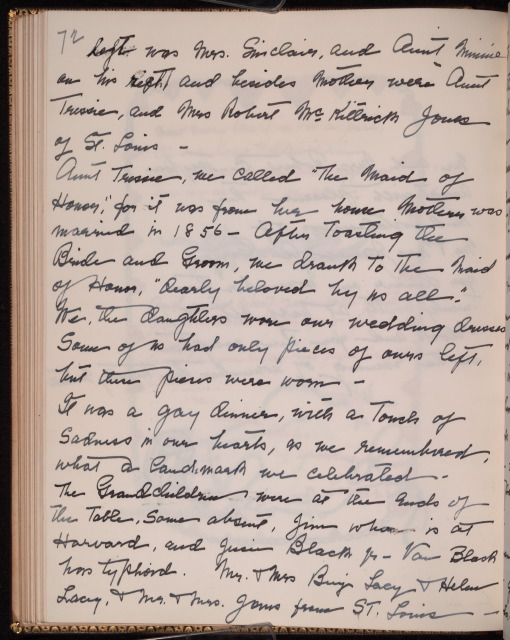 72
left was Mrs. Sinclair, and Aunt Minnie
on his right, and besides Mother were Aunt
Tressie, and Mrs Robert McKittrick Jones
of St. Louis -
Aunt Tressie, we called "The Maid of
Honor," for it was from her home Mother was
married in 1856 - After Toasting the
Bride and Groom, we drank To The Maid
of Honor, "dearly beloved by us all."
We, the daughters wore our wedding dresses
Some of us had only pieces of ours left,
but these pieces were worn -
It was a gay dinner, with a Touch of
Sadness in our hearts, as we remembered,
what a Landmark we celebrated -
The Grandchildren were at the ends of
the Table, Some absent, Jim who is at
Harvard, and Black Jr - Van Black
has typhoid. Mr. & Mrs Lacy & Helen
Lacy, & Mr. & Mrs. Jones from ST. Louis -